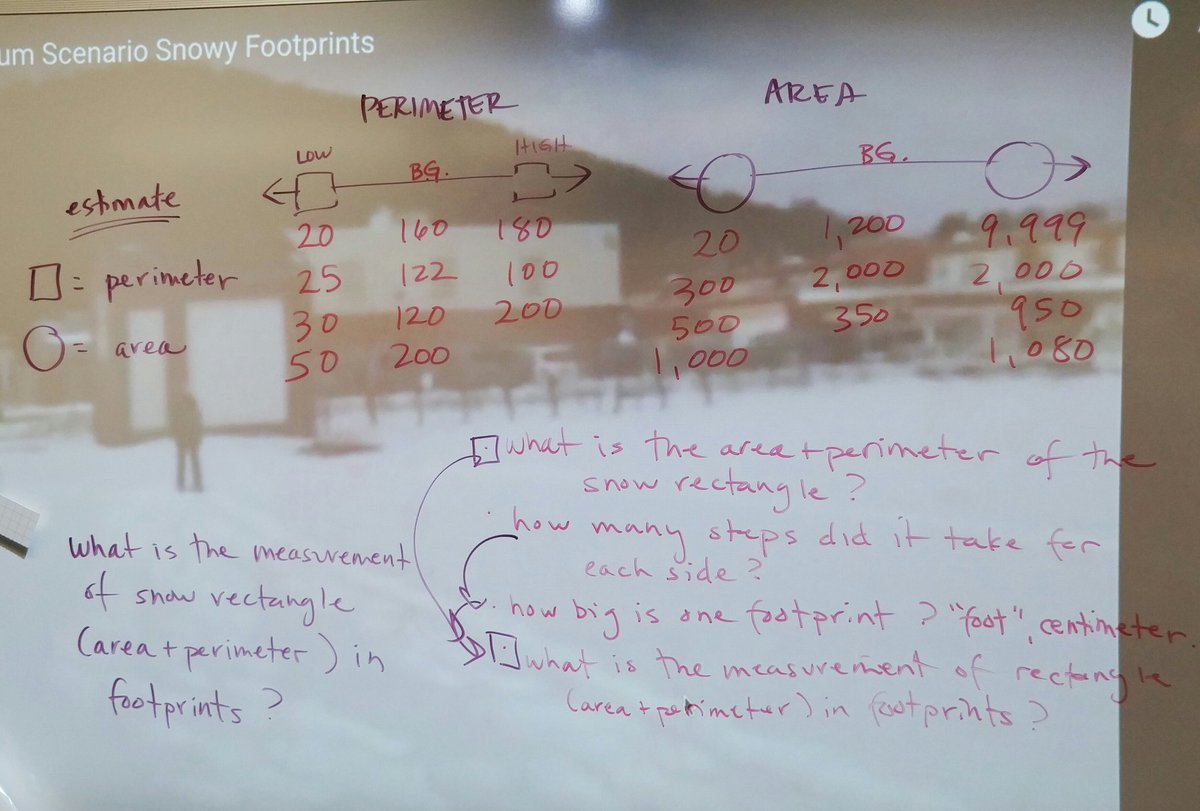 um Scenario Snowy Footprints
PERIMETER
AREA
LOW
BG.
HIGH
BG.
estimate
20 160 180
20 1,200 9,999
= perimeter
25 122 100
300 2,000 2,000
30 120 200
500 350 950
= area
50 200
1,000 1,080
what is the area + perimeter of the
snow rectangle ?
how many steps did it take for
each side ?
how big is one footprint ? "foot", centimeter
what is the measurement of rectangle
(area + perimeter) in footprints ?
what is the measurement
of snow rectangle
(area + perimeter) in
footprints ?